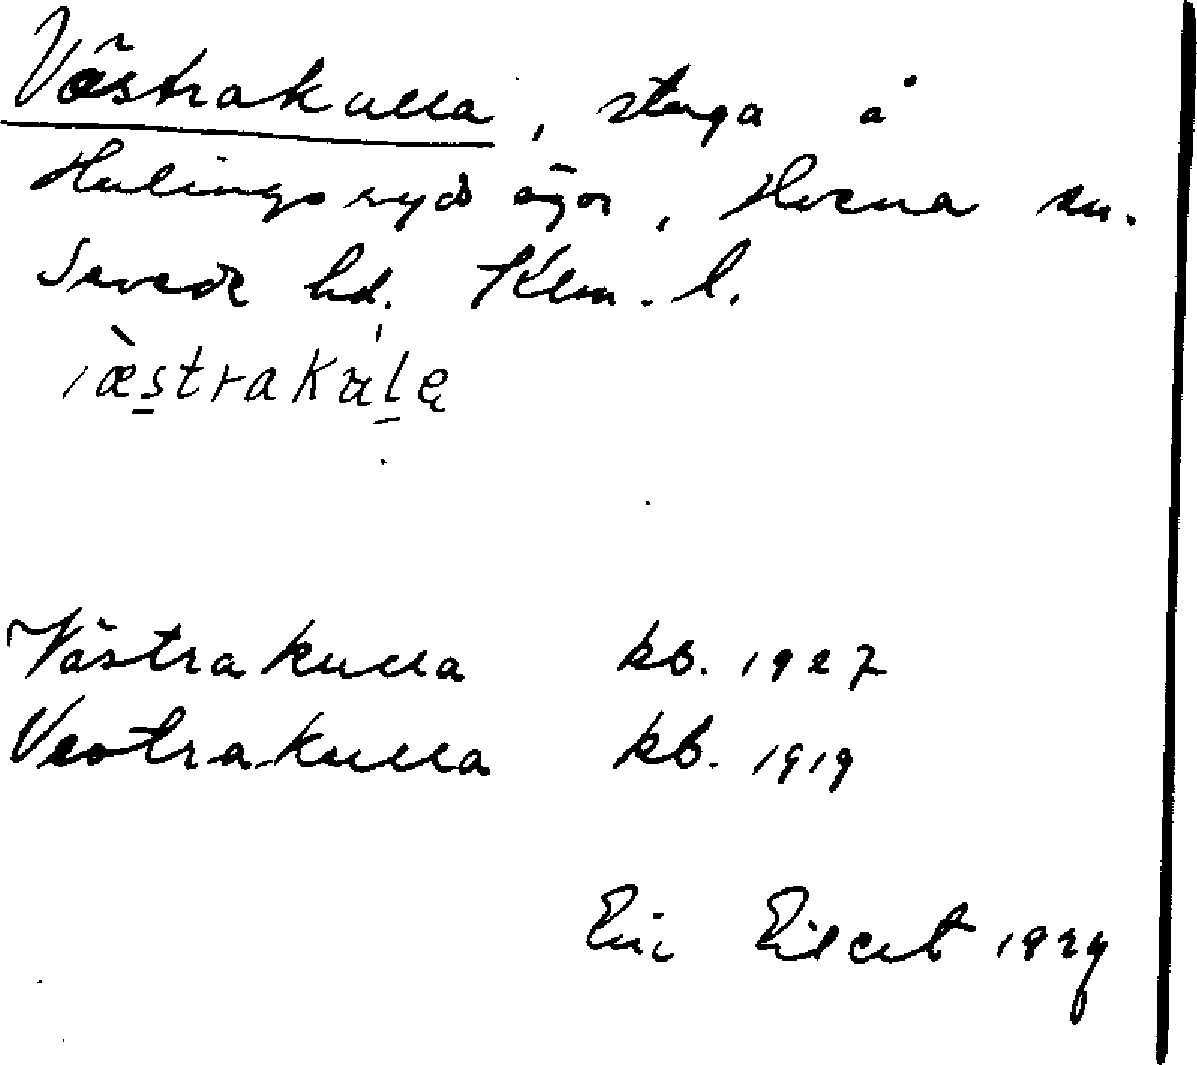 Västrakulla, stuga å
Hulingsryds ägor, Horna sn.
Sevede hd. Klm. l.
væstrakulę
Västrakulla kb. 1927
Vestrakulla kb. 1919
Eric Eilert 1929